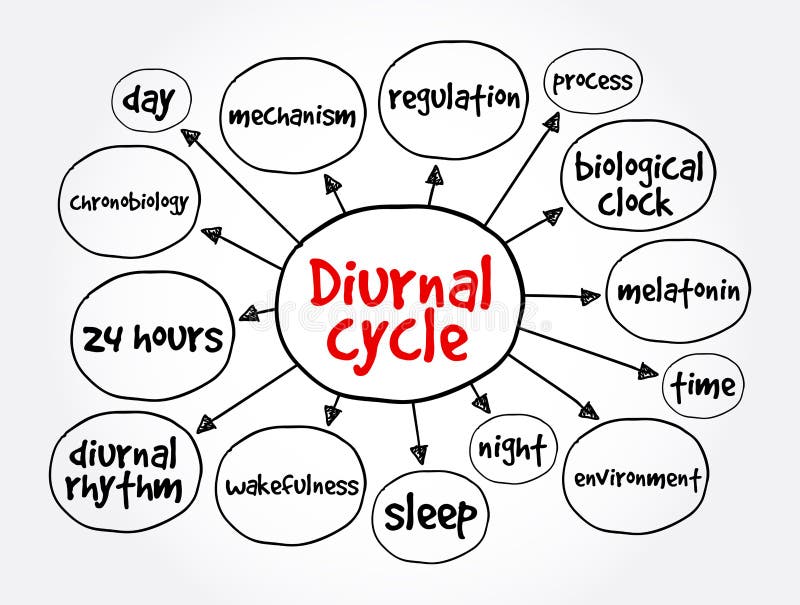 day
mechanism
regulation
process
chronobiology
biological
clock
Diurnal
cycle
24 hours
melatonin
time
diurnal
rhythm
wakefulness
sleep
night
environment
dreamstime